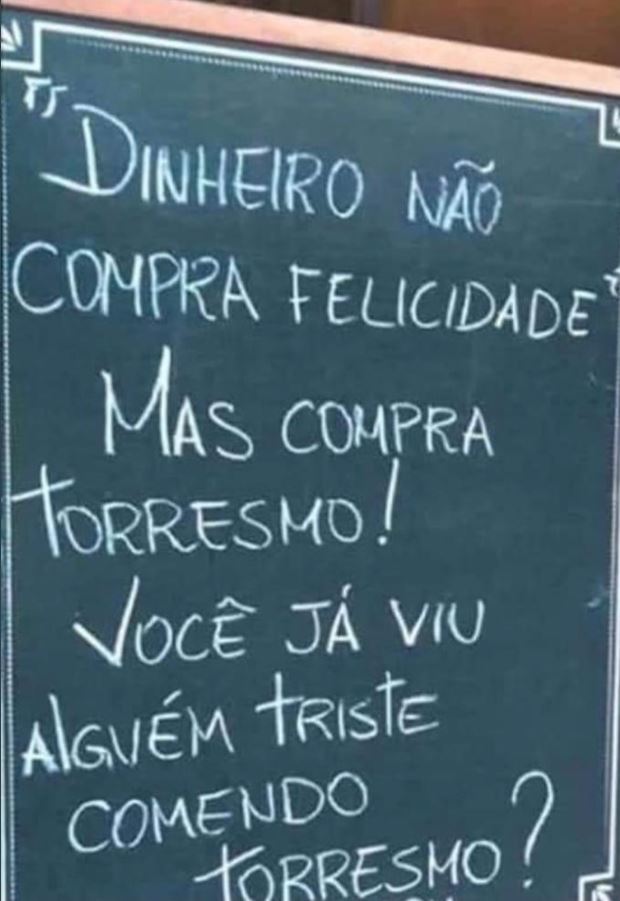 "DINHEIRO NÃO
COMPRA FELICIDADE"
MAS COMPRA
TORRESMO!
VOCÊ JÁ VIU
ALGUÉM TRISTE
COMENDO
TORRESMO?